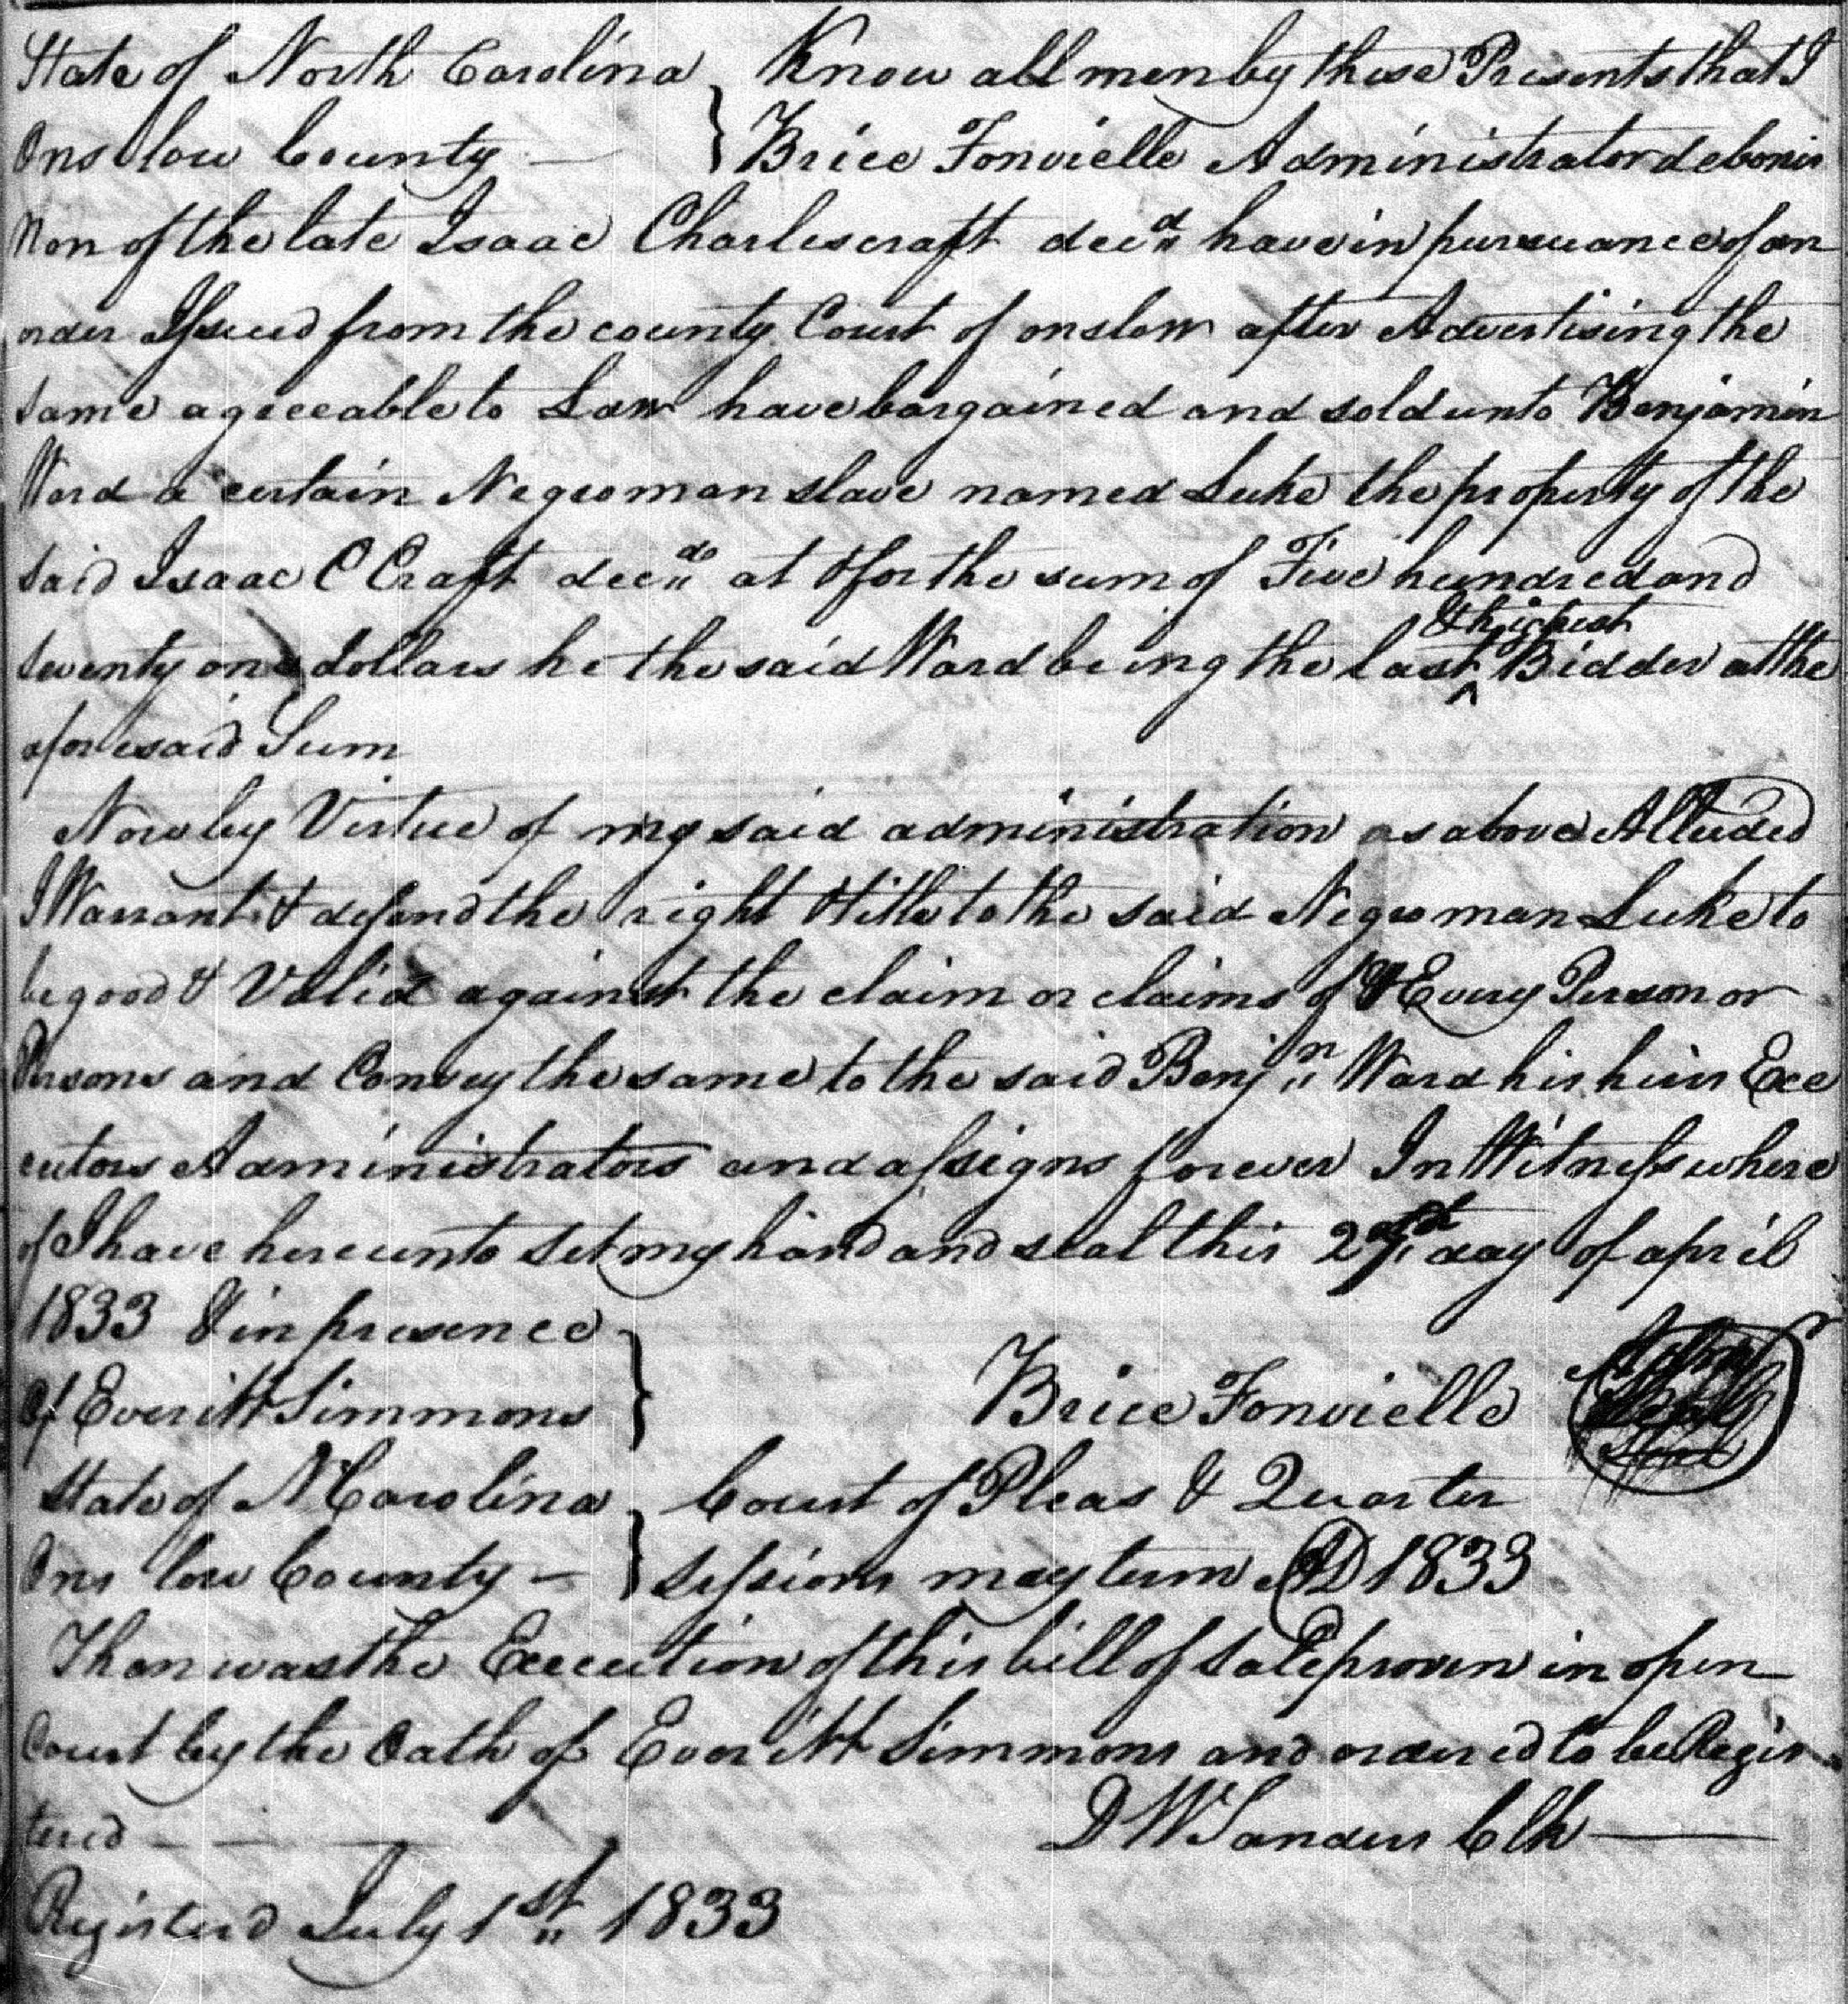 State of North Carolina } Know all men by these Presents that I
Onslow County — } Brice Fonvielle Administrator debonis
Non of the late Isaac Charlescraft decd have in pursuance of an
order Issued from the county Court of onslow after Advertising the
same agreeable to Law have bargained and sold unto Benjamin
Ward a certain Negro man slave named Luke the property of the
said Isaac C Craft decd at & for the sum of Five hundred and
twenty one dollars he the said Ward being the last ^ & highest Bidder at the
aforesaid Sum
Now by Virtue of my said administration as above Alluded
I Warrant & defend the right & title to the said Negro man Luke to
be good & Valid against the claim or claims of Every Person or
Persons and Convey the same to the said Benjn Ward his heirs Exe
cutors Administrators and assigns forever In Witness where
of I have hereunto set my hand and seal this day of april
1833 & in presence }
of Everitt Simmons } Brice Fonvielle
State of N Carolina } Court of Pleas & Quarter
Ons low County — } sessions may term AD 1833
Then was the Execution of this bill of sale proven in open
Court by the Oath of Everitt Simmons and ordered to be Regis
tered — — D W Sanders Clk —
Registerd July 1st 1833